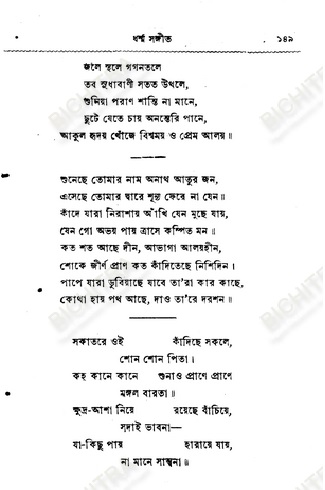 ধর্ম্ম সঙ্গীত ১৪৯
জলে স্থলে গগনতলে
তব সুধাবাণী সতত উথলে,
শুনিয়া পরাণ শান্তি না মানে,
ছুটে যেতে চায় অনন্তেরি পানে,
আকুল হৃদয় খোঁজে বিশ্বময় ও প্রেম আলয়॥
শুনেছে তোমার নাম অনাথ আতুর জন,
এসেছে তোমার দ্বারে শূন্য ফেরে না যেন॥
কাঁদে যারা নিরাশায় আঁখি যেন মুছে যায়,
যেন গো অভয় পায় ত্রাসে কম্পিত মন॥
কত শত আছে দীন, অভাগা আলয়হীন,
শোকে জীর্ণ প্রাণ কত কাঁদিতেছে নিশিদিন।
পাপে যারা ডুবিয়াছে যাবে তা'রা কার কাছে,
কোথা হায় পথ আছে, দাও তা'রে দরশন॥
সকাতরে ওই কাঁদিছে সকলে,
শোন শোন পিতা।
কহ কানে কানে শুনাও প্রাণে প্রাণে
মঙ্গল বারতা॥
ক্ষুদ্র-আশা নিয়ে রয়েছে বাঁচিয়ে,
সদাই ভাবনা—
যা-কিছু পায় হারায়ে যায়,
না মানে সান্ত্বনা॥